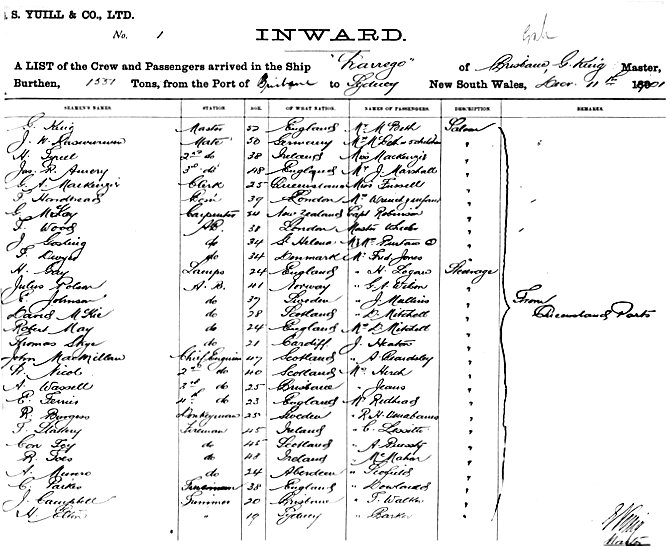 S. YUILL & CO., LTD.
No. 1
INWARD.
A LIST of the Crew and Passengers arrived in the Ship "Warrego" of Brisbane, G. King Master,
Burthen, 1551 Tons, from the Port of Brisbane to Sydney New South Wales, 11th 1901
SEAMEN'S NAMES. STATION AGE. OF WHAT NATION. NAMES OF PASSENGERS. DESCRIPTION REMARKS.
G. King Master 52 England Mr McBeth Saloon
J. W. Mate 50 Germany Mrs McBeth & children "
H. 2nd do 38 Ireland Miss Mackenzie "
Jas. R. Avery 3rd do 48 England Mr J. Marshall "
G. A. MacKenzie Clerk 25 Queensland Miss Fussell "
39 London Mrs "
G. McKay Carpenter 34 New Zealand Capt Robinson "
T. Wood A.B. 38 London Master "
J. Gosling do 34 St Helena "
F. Dwyer do 34 Denmark Mr Fred Jones "
H. Gay Lamps 24 England " H. Logan Steerage
Julius Olsen A.B. 41 Norway " "
E. Johnson do 37 Sweden " J. Mathers "
David McKie do 28 Scotland " D. Mitchell "
Robert May do 24 England Mrs D. Mitchell "
Thomas Skye do 21 Cardiff J. Heaton "
John MacMillan Chief Engineer 47 Scotland " A. Bardsley "
W. Nicol 2nd do 40 Scotland Mr "
A. Wassell 3rd do 25 Brisbane " Jeans "
E. Ferris 4th do 23 England Mr Redhead "
R. Burgess Donkeyman 25 Sweden " R. H. "
T. Slattery Fireman 45 Ireland " C. "
Con Foy do 45 Scotland " A. "
R. do 43 Ireland " McMahon "
A. Munro do 24 Aberdeen " Scofield "
C. Parkes 38 England " "
J. Campbell Trimmer 20 Brisbane " T. Walker "
H. " 19 Sydney " Barker "
From
Queensland Ports
G King
Master